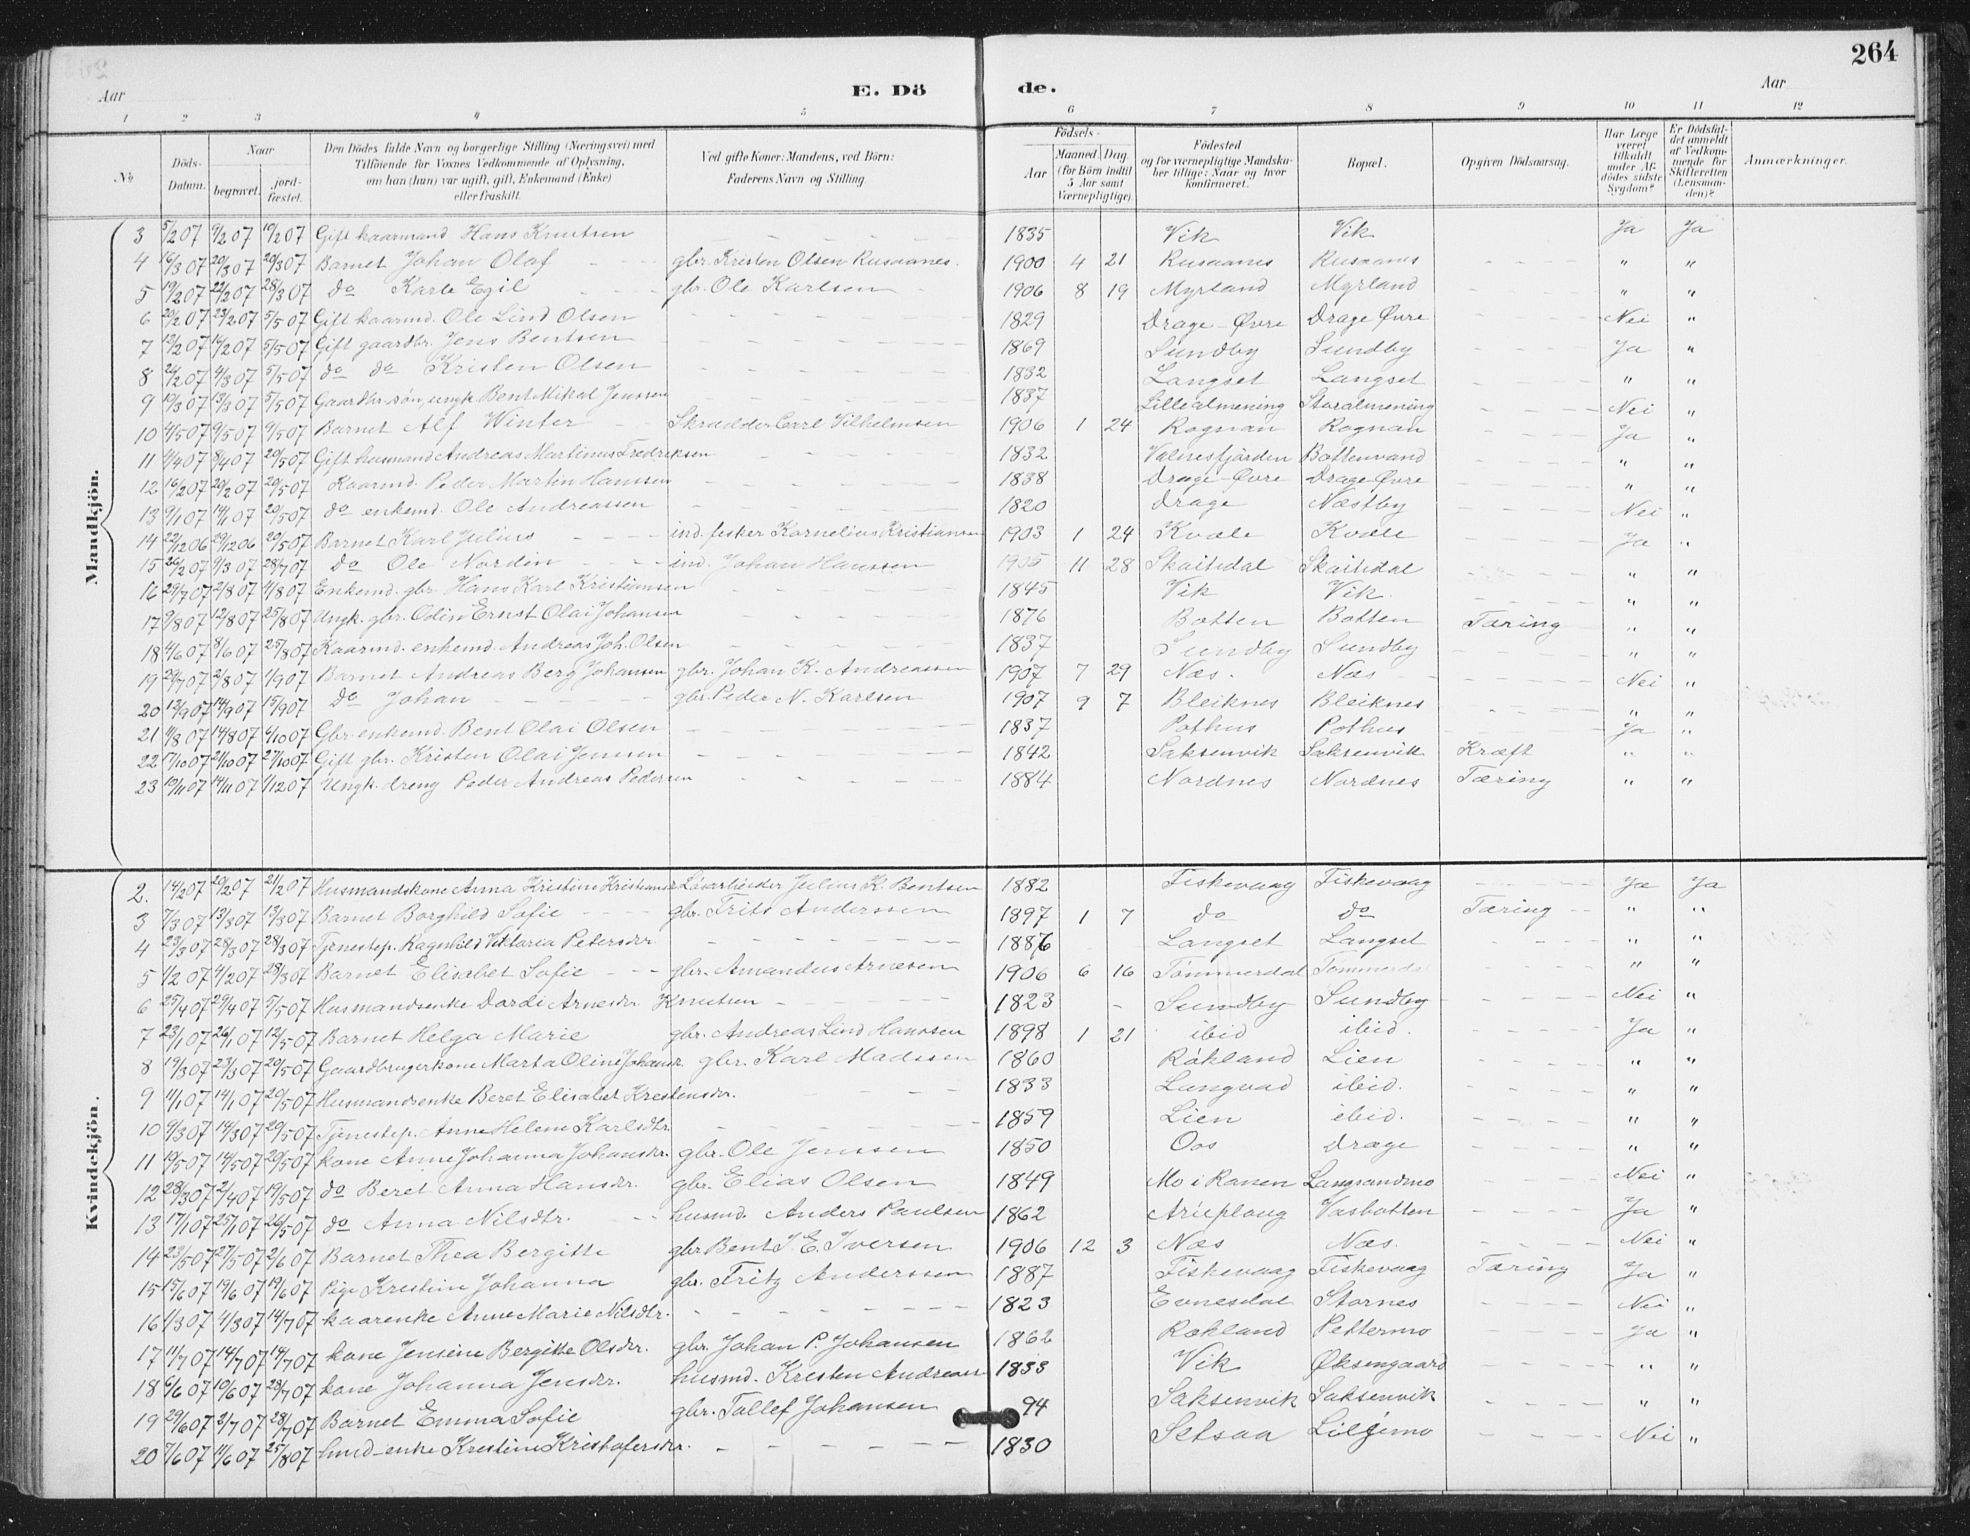 264
Aar
E. Dö
de.
Aar
1 2 3 4 5 6 7 8 9 10 11 12
No
Döds-Datum.
Naar
begravet.
jord-fæstet.
Den Dödes fulde Navn og borgerlige Stilling (Næringsvei) med
Tilföiende for Voxnes Vedkommende af Oplysning,
om han (hun) var ugift, gift, Enkemand (Enke)
eller fraskilt.
Ved gifte Koner: Mandens, ved Börn:
Faderens Navn og Stilling.
Födsels-
Aar
Maaned Dag
(for Börn indtil
5 Aar samt
Værnepligtige)
Födested
og for værnepligtige Mandska-
ber tillige: Naar og hvor
konfirmeret.
Bopæl.
Opgiven Dödsaarsag.
Har Læge
været
tilkaldt
under Af-
dödes sidste
Sygdom?
Er Dödsfal-
det anmeldt
af Vedkom-
mende for
Skifteretten
(Lensman-
den)?
Anmærkninger.
Mandkjön.
3 5/2 07 9/2 07 10/2 07 Gift kaarmand Hans Knutsen 1835 Vik Vik Ja Ja
4 16/3 07 20/3 07 20/3 07 Barnet Johan Olaf gbr. Kristen Olsen Rusaanes. 1900 4 21 Rusaanes Rusaanes " "
5 19/2 07 22/2 07 28/3 07 do Karle Egil gbr. Ole Karlsen 1906 8 19 Myrland Myrland " "
6 20/2 07 23/2 07 5/5 07 Gift kaarmd. Ole Lind Olsen 1829 Drage-Øvre Drage Øvre Nei "
7 12/2 07 16/2 07 5/5 07 Gift gaardbr. Jens Bentsen 1869 Sundby Sundby Ja "
8 26/2 07 4/3 07 5/5 07 do do Kristen Olsen 1832 Langset Langset " "
9 10/3 07 13/3 07 5/5 07 Gaardbr. søn, ungk. Bent Mikal Jenssen 1837 Lillealmening Storalmening Nei "
10 4/5 07 9/5 07 9/5 07 Barnet Alf Winter Skrædder Carl Vilhelmsen 1906 1 24 Rognan Rognan Ja "
11 4/4 07 8/4 07 20/5 07 Gift husmand Andreas Martinus Fredriksen 1832 Valnesfjorden Bottenvand " "
12 16/2 07 20/2 07 20/5 07 Kaarmd. Peder Martin Hansen 1838 Drage-Øvre Drage-Øvre " "
13 9/1 07 14/1 07 20/5 07 do enkemd. Ole Andreassen 1820 Drage Næstby Nei "
14 22/12 06 29/12 06 20/5 07 Barnet Karl Julius ind. fisker Kornelius Kristiansen 1903 1 24 Kvæle Kvæle Ja "
15 26/2 07 9/3 07 28/7 07 do Ole Nordin ind. Johan Hanssen 1905 11 28 Skaitidal Skaitidal " "
16 29/7 07 2/8 07 4/8 07 Enkemd. gbr. Hans Karl Kristiansen 1845 Vik Vik. " "
17 9/8 07 12/8 07 25/8 07 Ungk. gbr. Odin Ernst Olai Johansen 1876 Botten Botten Tæring " "
18 4/6 07 8/6 07 25/8 07 Kaarmd. enkemd. Andreas Joh. Olsen 1837 Sundby Sundby " "
19 29/7 07 2/8 07 1/9 07 Barnet Andreas Berg Johansen gbr. Johan K. Andreassen 1907 7 29 Næs. Næs Nei "
20 12/9 07 14/9 07 15/9 07 do Johan gbr. Peder N. Karlsen 1907 9 7 Bleiknes Bleiknes " "
21 9/8 07 14/8 07 6/10 07 Gbr. enkemd. Bent Olai Olsen 1837 Pothus Pothus Ja "
22 17/10 07 21/10 07 27/10 07 Gift gbr. Kristen Olai Jenssen 1842 Saksenvik Saksenvik Kræft " "
23 10/11 07 14/11 07 1/12 07 Ungk. dreng Peder Andreas Pedersen 1884 Nordnes Nordnes Tæring " "
Kvindekjön.
2. 14/2 07 20/2 07 21/2 07 Husmandskone Anna Kristine Kristiansdr Løsarbeider Julius K. Bentsen 1882 Fiskevaag Fiskevaag Ja Ja
3 7/3 07 13/3 07 13/3 07 Barnet Borghild Sofie gbr. Frits Anderssen 1897 1 7 do do Tæring " "
4 23/3 07 28/3 07 28/3 07 Tjenestep. Ragnhild Viktoria Petersdr. 1886 Langset Langset " "
5 1/2 07 4/2 07 28/3 07 Barnet Elisabet Sofie gbr. Amandus Arnesen 1906 6 16 Tømmerdal Tømmerdal " "
6 25/4 07 29/4 07 5/5 07 Husmandsenke Dordi Arnesdr. Knutsen 1823 Sundby Sundby Nei "
7 23/1 07 26/1 07 12/5 07 Barnet Helga Marie gbr. Andreas Lind Hanssen 1898 1 21 ibid ibid. Ja "
8 19/3 07 23/3 07 20/5 07 Gaardbrugerkone Marta Oline Johansdr. gbr. Karl Madssen 1860 Rökland Lien " "
9 11/1 07 14/1 07 20/5 07 Husmandsenke Beret Elisabet Krestensdr. 1833 Lungvad ibid. " "
10 9/3 07 14/3 07 20/5 07 Tjenestep. Anne Helene Karlsdtr. 1859 Lien ibid. " "
11 10/5 07 14/5 07 20/5 07 kone Anne Johanna Johansdr. gbr. Ole Jenssen 1850 Oos Drage " "
12 28/3 07 2/4 07 19/5 07 do Beret Anna Hansdr. gbr. Elias Olsen 1849 Mo i Ranen Langsandmo Nei "
13 17/1 07 25/1 07 26/5 07 do Anna Nilsdtr. husmd. Anders Paulsen 1862 Arieplaug Vasbotten Ja "
14 23/5 07 27/5 07 2/6 07 Barnet Thea Bergitte gbr Bent J. E. Iversen 1906 12 3 Næs Næs. Nei "
15 15/6 07 19/6 07 19/6 07 Pige Kristine Johanna gbr. Fritz Anderssen 1887 Fiskevaag Fiskevaag Tæring Ja "
16 1/3 07 4/3 07 14/7 07 kaarenke Anne Marie Nilsdtr. 1823 Evnesdal Stornes Nei "
17 11/7 07 14/7 07 14/7 07 kone Jensine Bergitte Olsdr. gbr. Johan P. Johansen 1862 Rökland Pettermo Ja "
18 6/6 07 10/6 07 28/7 07 kone Johanna Jensdr. husmd. Kresten Andreasen 1833 Vik Øksengaard " "
19 29/6 07 3/7 07 28/7 07 Barnet Emma Sofie gbr. Tollef Johansen 94 Saksenvik Saksenvik " "
20 7/6 07 11/6 07 25/8 07 husd-enke Kristine Kristofersdr. 1830 Setsaa Liljemo Nei "